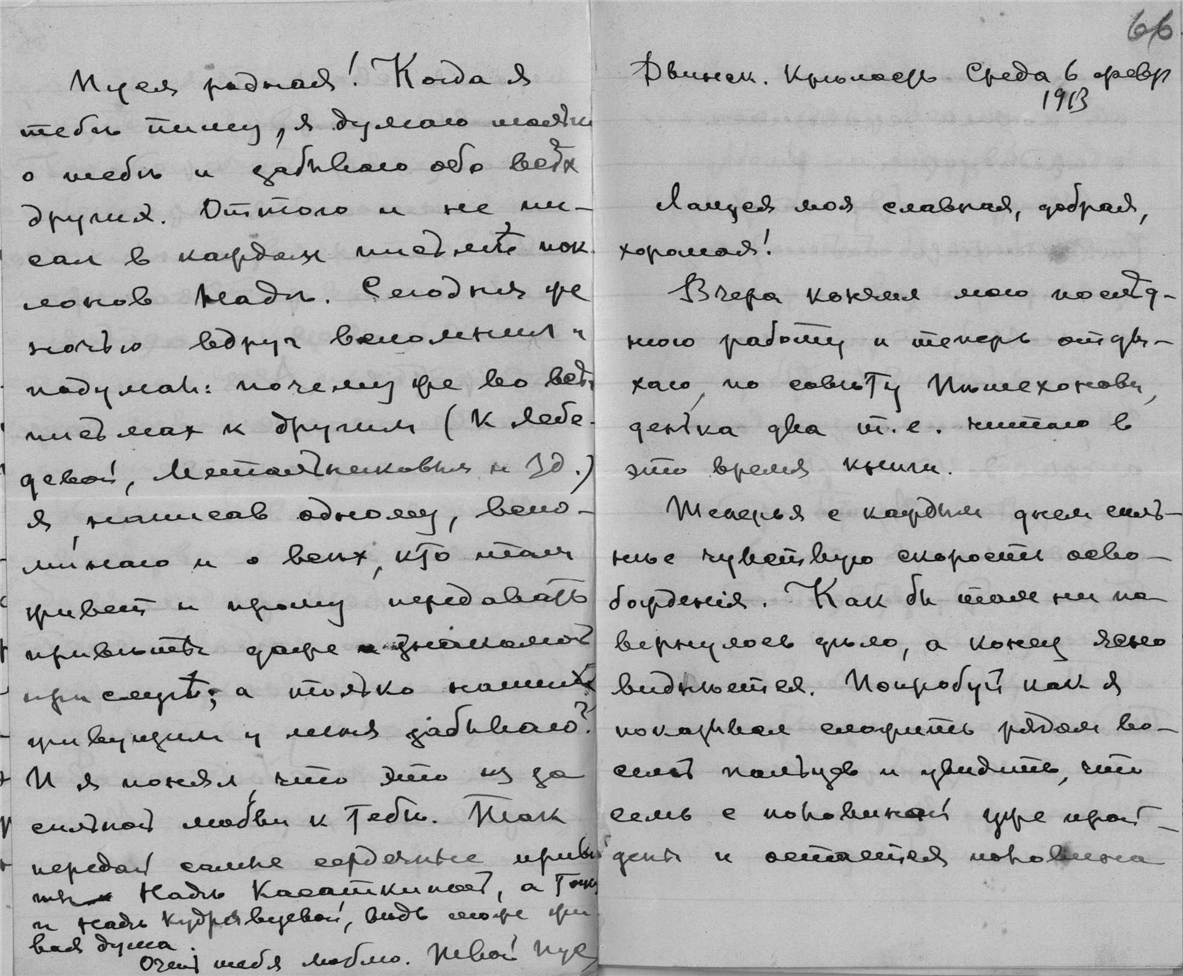 Пуся родная! Когда я
тебѣ пишу, я думаю только
о тебѣ и забываю обо всѣх
других. Оттого и не пи-
сал в каждом письмѣ пок-
лонов Надѣ. Сегодня же
ночью вдруг вспомнил и
подумал: почему же во всѣх
письмах к другим (к Лебе-
девой, Метальниковым и др.)
я, написав одному, вспо-
минаю и о всѣх, кто там
живет и прошу передавать
привѣты даже знакомой
прислугѣ; а только наших
живущим у меня забываю?
И я понял, что это из за
сильной любви к Тебѣ. Так
передай самые сердечные привѣ-
ты Надѣ Касаткиной, а Тоже
и Надѣ Кудрявцевой, вѣдь тоже жи-
вая душа.
Очень тебя люблю. Твой Пус
66
Двинск. Крѣпость Среда 6 февр
1913
Лапуся моя славная, добрая,
хорошая!
Вчера кончил мою послѣд-
нюю работу и теперь отды-
хаю, по совѣту Пѣшехонова,
денька два т.е. читаю в
это время книги.
Теперь я с каждым днем силь-
нѣе чувствую скорость осво-
божденія. Как бы там ни по-
вернулось дѣло, а конец ясно
виднѣется. Попробуй как я
показывал сложить рядом во-
семь пальцев и увидишь, что
семь с половиной уже прой-
дены и остается половина